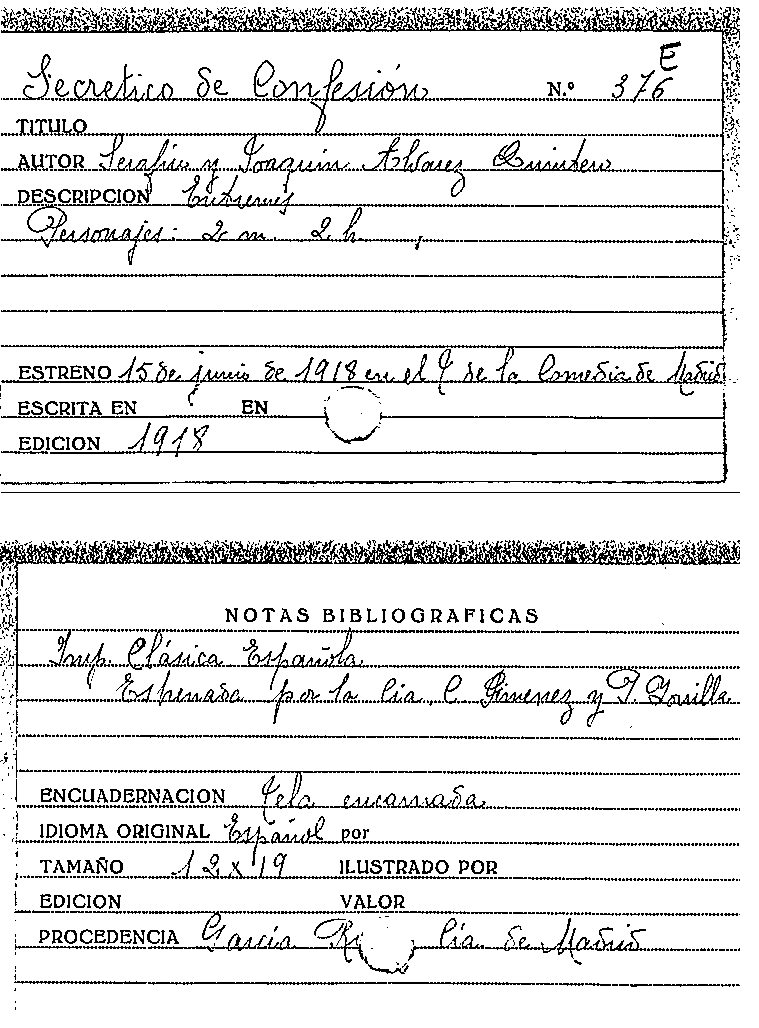 E
Secretico de Confesión N.º 376
TITULO
AUTOR Serafin y Joaquin Alvarez Quintero
DESCRIPCION Entremés
Personajes: 2 m. 2 h.
ESTRENO 15 de junio de 1918 en el T. de la Comedia de Madrid
ESCRITA EN EN
EDICION 1918
NOTAS BIBLIOGRAFICAS
Imp. Clásica Española
Estrenada por la Cia. C. Gimenez y P.
ENCUADERNACION Tela encarnada
IDIOMA ORIGINAL Español por
TAMAÑO 12 x 19 ILUSTRADO POR
EDICION VALOR
PROCEDENCIA García Cía. de Madrid